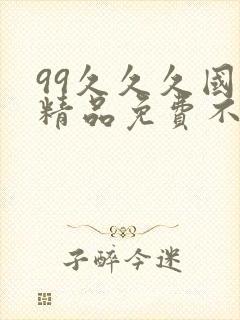 99久久久国
精品免费不
子醉今迷